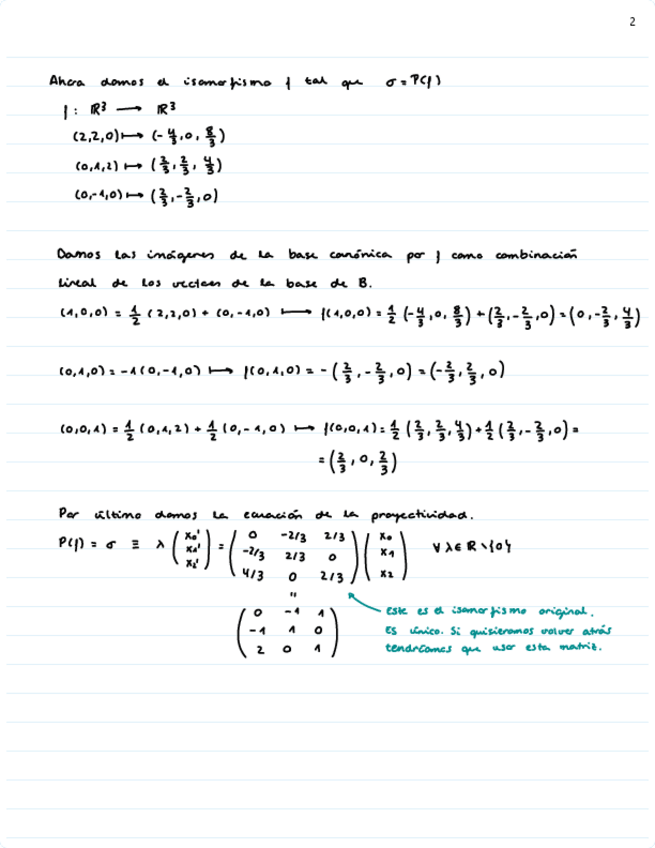 2
Ahora damos el isomorfismo f tal que σ = P(f)
f: ℝ³ ⟶ ℝ³
(2,2,0) ⟼ (-4/3, 0, 8/3)
(0,1,2) ⟼ (2/3, 2/3, 4/3)
(0,-1,0) ⟼ (2/3, -2/3, 0)
Damos las imágenes de la base canónica por f como combinación
lineal de los vectores de la base de B.
(1,0,0) = 1/2 (2,2,0) + (0,-1,0) ⟼ f(1,0,0) = 1/2 (-4/3, 0, 8/3) + (2/3, -2/3, 0) = (0, -2/3, 4/3)
(0,1,0) = -1(0,-1,0) ⟼ f(0,1,0) = -(2/3, -2/3, 0) = (-2/3, 2/3, 0)
(0,0,1) = 1/2 (0,1,2) + 1/2 (0,-1,0) ⟼ f(0,0,1) = 1/2 (2/3, 2/3, 4/3) + 1/2 (2/3, -2/3, 0) =
= (2/3, 0, 2/3)
Por último damos la ecuación de la proyectividad.
P(f) = σ ≡ λ (x₀' x₁' x₂') = (0 -2/3 2/3 | -2/3 2/3 0 | 4/3 0 2/3) (x₀ x₁ x₂) ∀ λ ∈ ℝ \ {0}
"
(0 -1 1 | -1 1 0 | 2 0 1)
Este es el isomorfismo original.
Es único. Si quisieramos volver atrás
tendríamos que usar esta matriz.